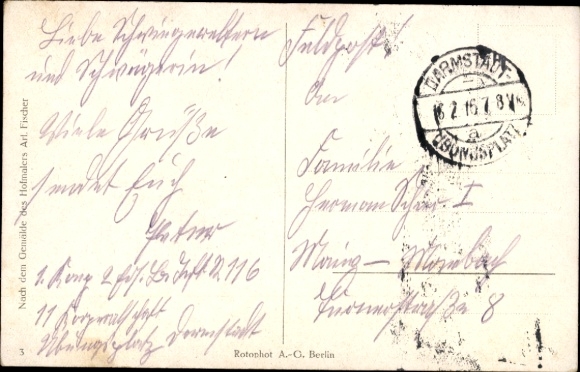 Liebe Schwiegereltern
und Schwägerin!
Viele Grüße
sendet Euch
Peter
1. Komp 2 Ers. Btl. Inft. R. 116
11 Korporalschaft
Übungsplatz Darmstadt
Feldpost!
An
Familie
Herman I
Mainz – Mombach
Turnerstraße 8
DARMSTADT-
2.16.7 8V
a
ÜBUNGSPLATZ
Nach dem Gemälde des Hofmalers Art. Fischer
3
Rotophot A.-G. Berlin